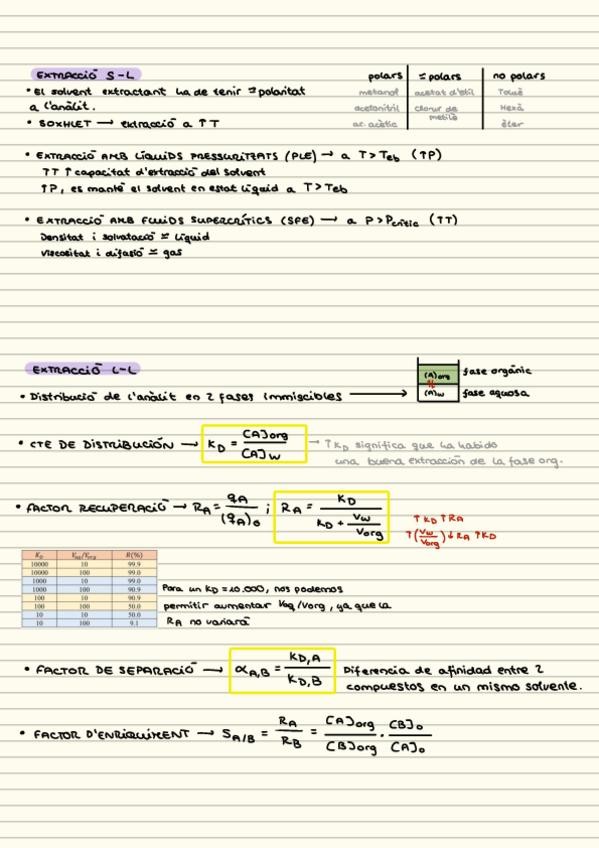 EXTRACCIÓ S-L
polars ≈ polars no polars
• El solvent extractant ha de tenir = polaritat
a l'anàlit.
metanol acetat d'etil Toluè
acetonitril clorur de metilè Hexà
ac. acètic èter
• SOXHLET → extracció a ↑T
• EXTRACCIÓ AMB LÍQUIDS PRESSURITZATS (PLE) → a T>Teb (↑P)
↑T ↑ capacitat d'extracció del solvent
↑P, es manté el solvent en estat líquid a T>Teb
• EXTRACCIÓ AMB FLUIDS SUPERCRÍTICS (SFE) → a P>Pcrític (↑T)
Densitat i solvatació ≈ líquid
Viscositat i difusió ≈ gas
EXTRACCIÓ L-L
(A)org fase orgànic
(A)w fase aquosa
• Distribució de l'anàlit en 2 fases immiscibles →
• CTE DE DISTRIBUCIÓN → KD = [A]org / [A]w → ↑KD significa que ha habido
una buena extracción de la fase org.
• FACTOR RECUPERACIÓ → RA = qA / (qA)0 ; RA = KD / (KD + Vw/Vorg)
↑KD ↑RA
↑(Vw/Vorg) ↓RA ↑KD
KD Vaq/Vorg R(%)
10000 10 99.9
10000 100 99.0
1000 10 99.0
1000 100 90.9
100 10 90.9
100 100 50.0
10 10 50.0
10 100 9.1
Para un KD = 10.000, nos podemos
permitir aumentar Vaq/Vorg, ya que la
RA no variará
• FACTOR DE SEPARACIÓ → αA,B = KD,A / KD,B Diferencia de afinidad entre 2
compuestos en un mismo solvente.
• FACTOR D'ENRIQUIMENT → SA/B = RA / RB = [A]org / [B]org · [B]0 / [A]0